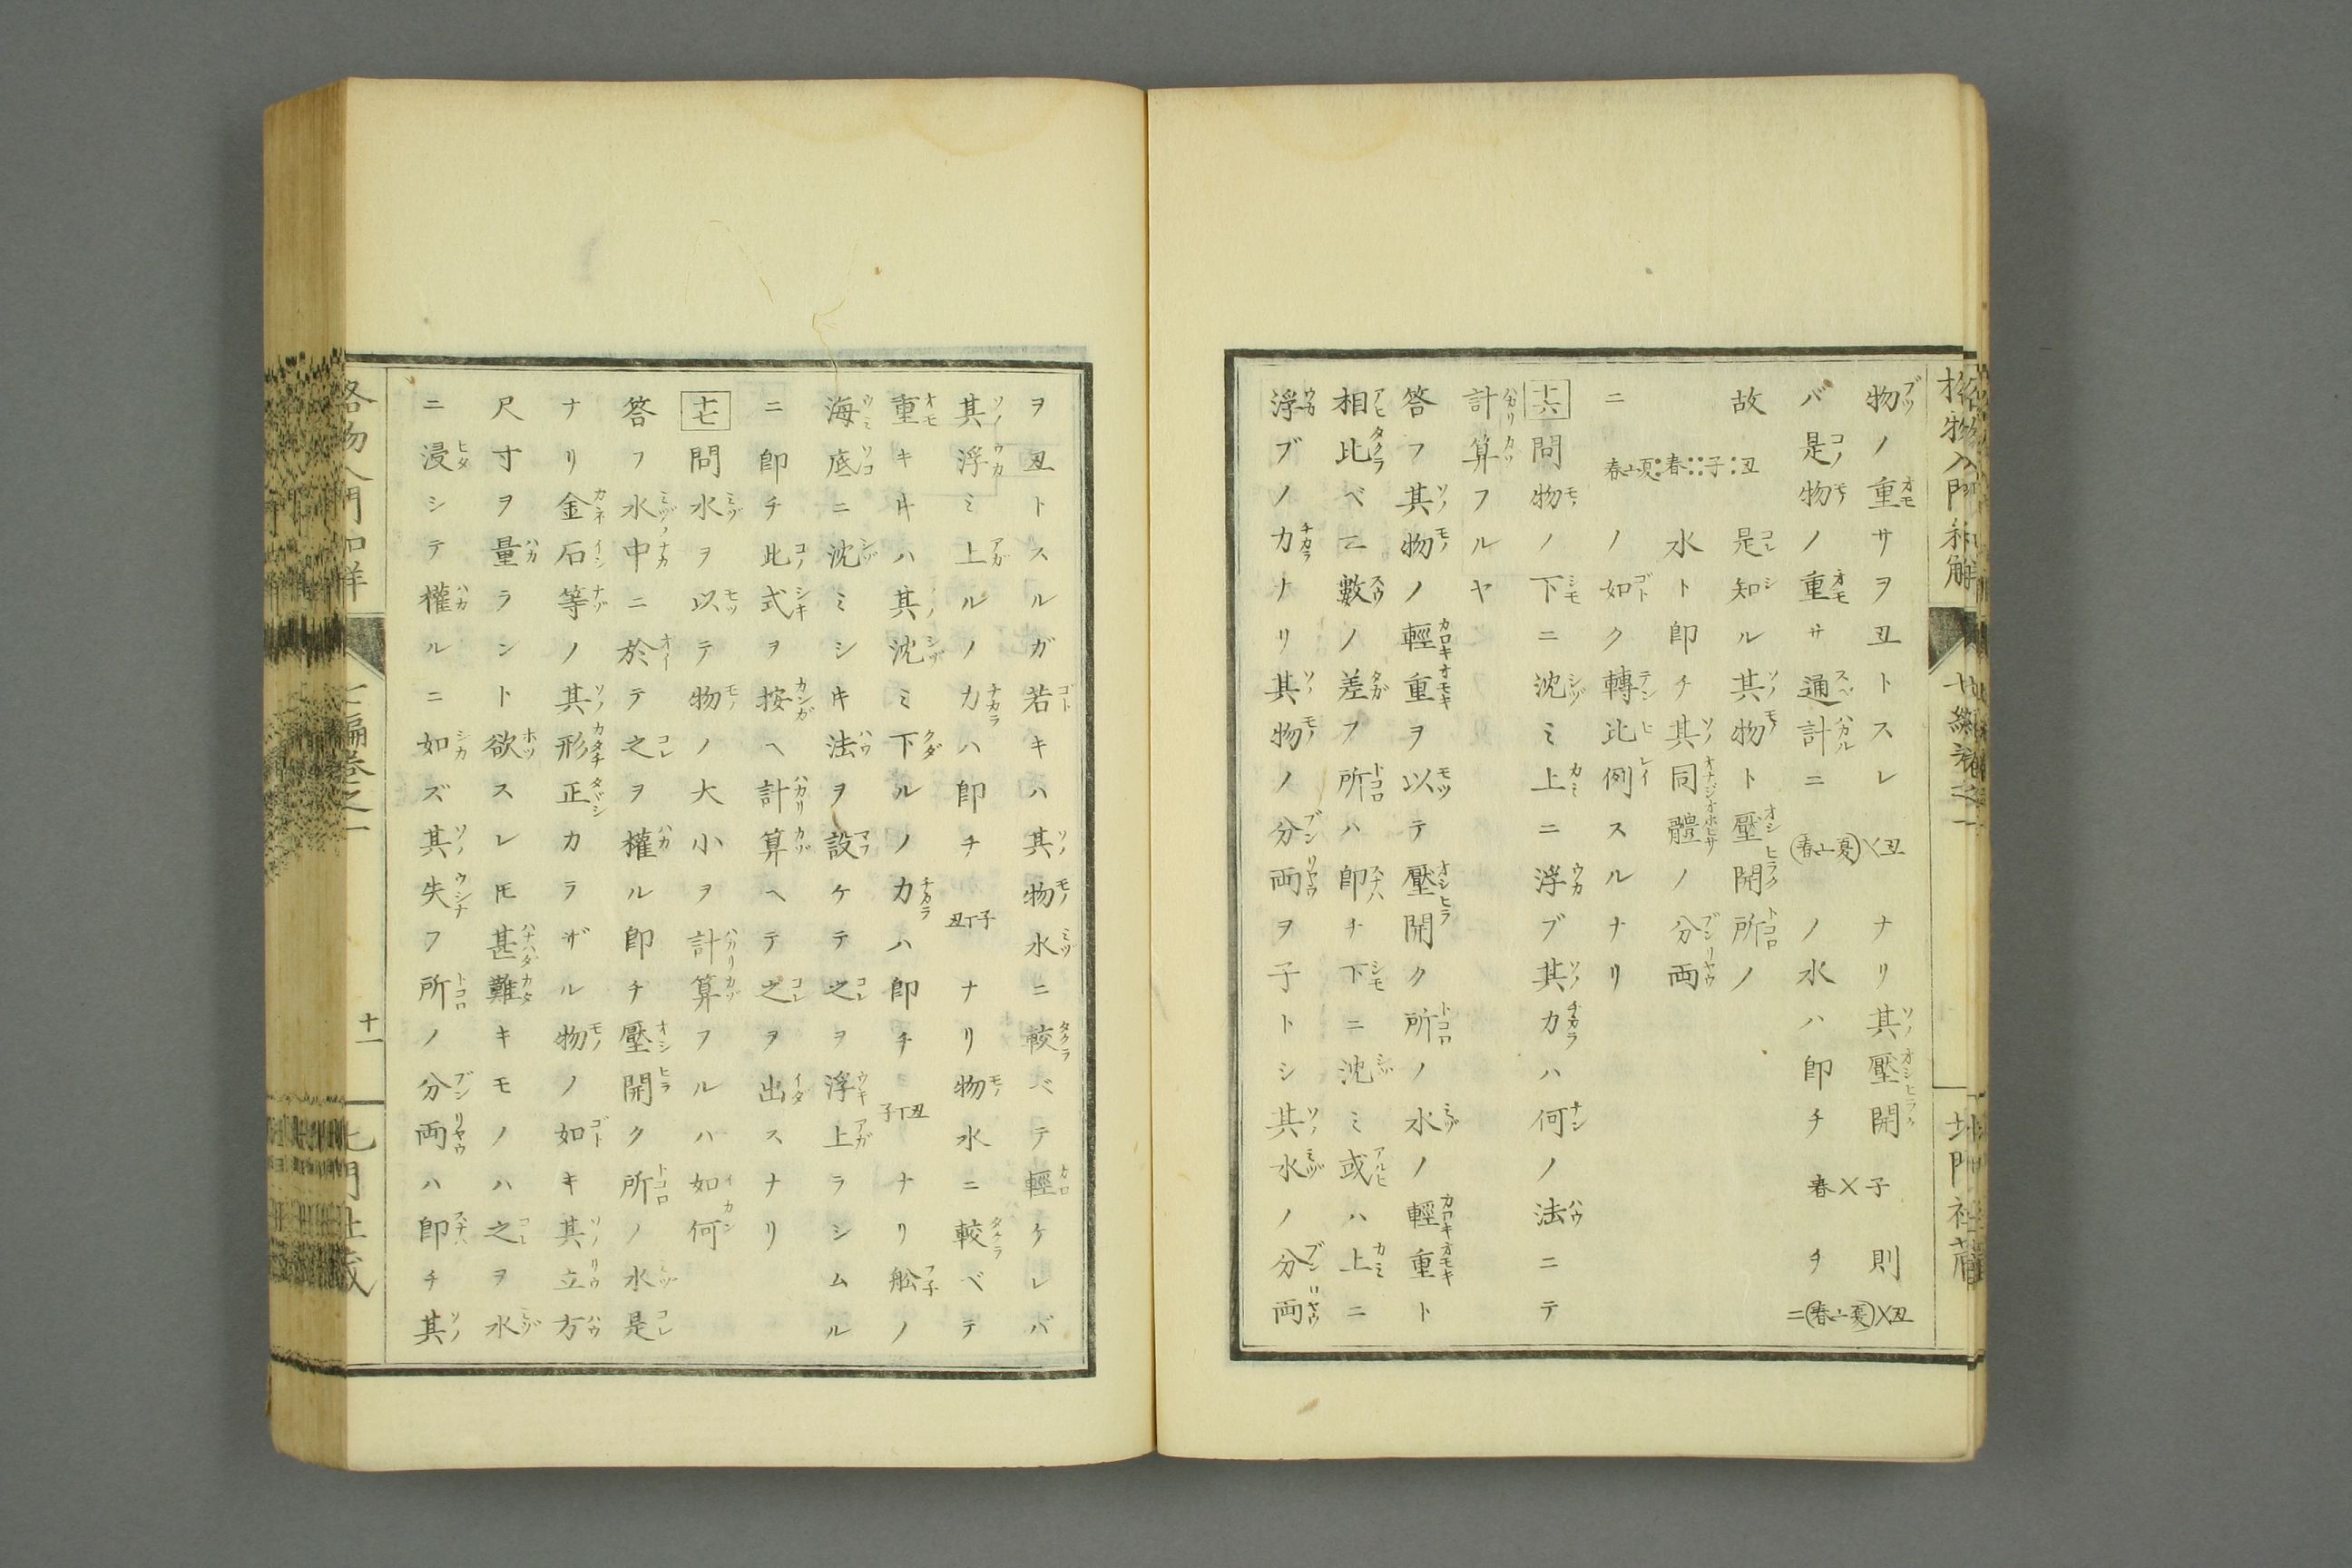 物ノ重サヲ丑トスレ ナリ其壓開 則
バ是物ノ重サ通計ニ 丑×(夏⊥春) ノ水ハ卽チ 子×春 ヲ 丑×(夏⊥春)ニ
故 是知ル其物ト壓開所ノ
丑:子::春:夏⊥春 水ト卽チ其同體ノ分両
ニ ノ如ク轉比例スルナリ
十六 問物ノ下ニ沈ミ上ニ浮ブ其力ハ何ノ法ニテ
計算フルヤ
答フ其物ノ輕重ヲ以テ壓開ク所ノ水ノ輕重ト
相比ベ二數ノ差フ所ハ卽チ下ニ沈ミ或ハ上ニ
浮ブノ力ナリ其物ノ分両ヲ子トシ其水ノ分両
格物入門和解
七編卷之一
北門社藏
ヲ丑トスルガ若キハ其物水ニ較ベテ輕ケレバ
其浮ミ上ルノ力ハ卽チ 子丅丑 ナリ物水ニ較ベテ
重キ井ハ其沈ミ下ルノ力ハ卽チ 丑丅子 ナリ舩ノ
海底ニ沈ミシキ法ヲ設ケテ之ヲ浮上ラシムル
ニ卽チ此式ヲ按ヘ計算ヘテ之ヲ出スナリ
十七 問水ヲ以テ物ノ大小ヲ計算フルハ如何
答フ水中ニ於テ之ヲ權ル卽チ壓開ク所ノ水是
ナリ金石等ノ其形正カラザル物ノ如キ其立方
尺寸ヲ量ラント欲スレ𪜈甚難キモノハ之ヲ水
ニ浸シテ權ルニ如ズ其失フ所ノ分両ハ卽チ其
格物入門和解
七編卷之一
十一
北門社藏